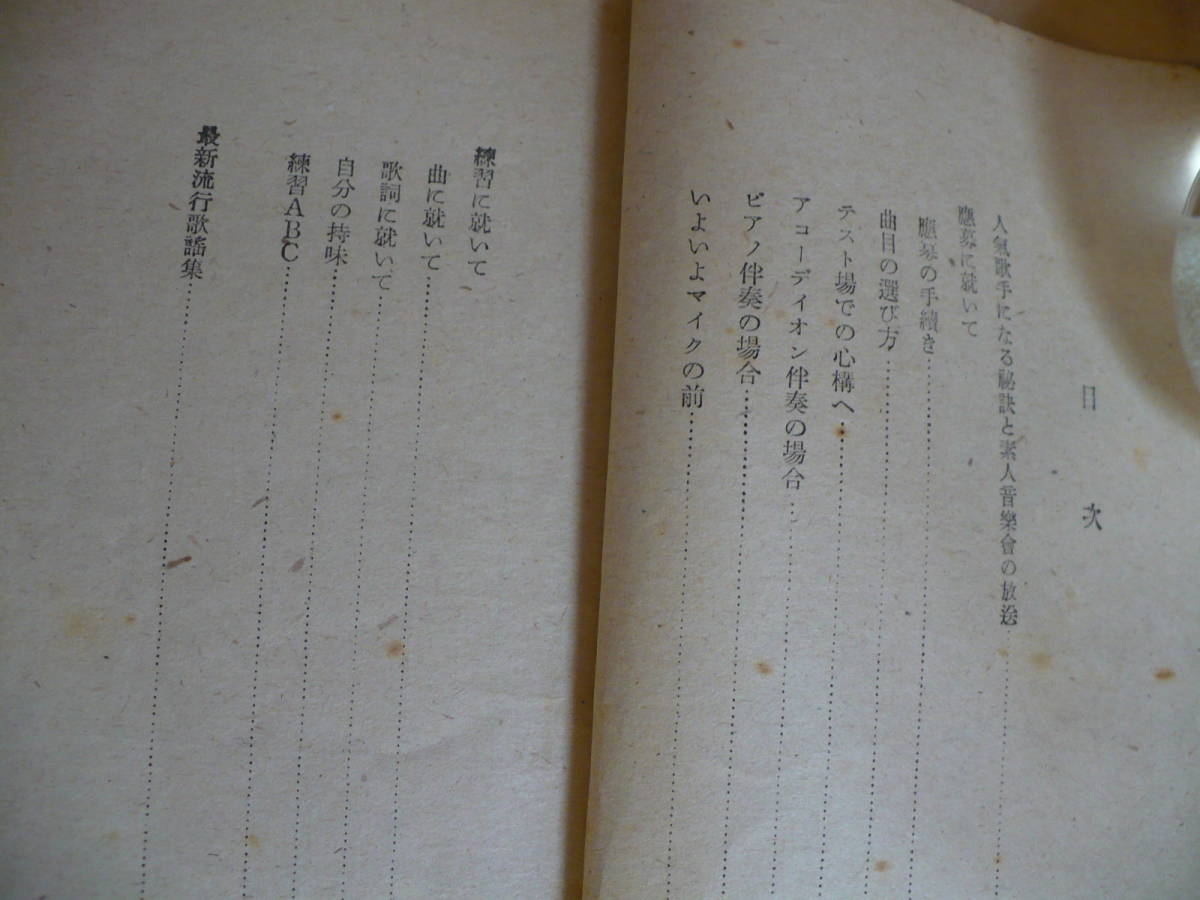 目次
人氣歌手になる祕訣と素人音樂會の放送
應募に就いて
應募の手續き
曲目の選び方
テスト場での心構へ
アコーデイオン伴奏の場合
ピアノ伴奏の場合
いよいよマイクの前
練習に就いて
曲に就いて
歌詞に就いて
自分の持味
練習ABC
最新流行歌謠集